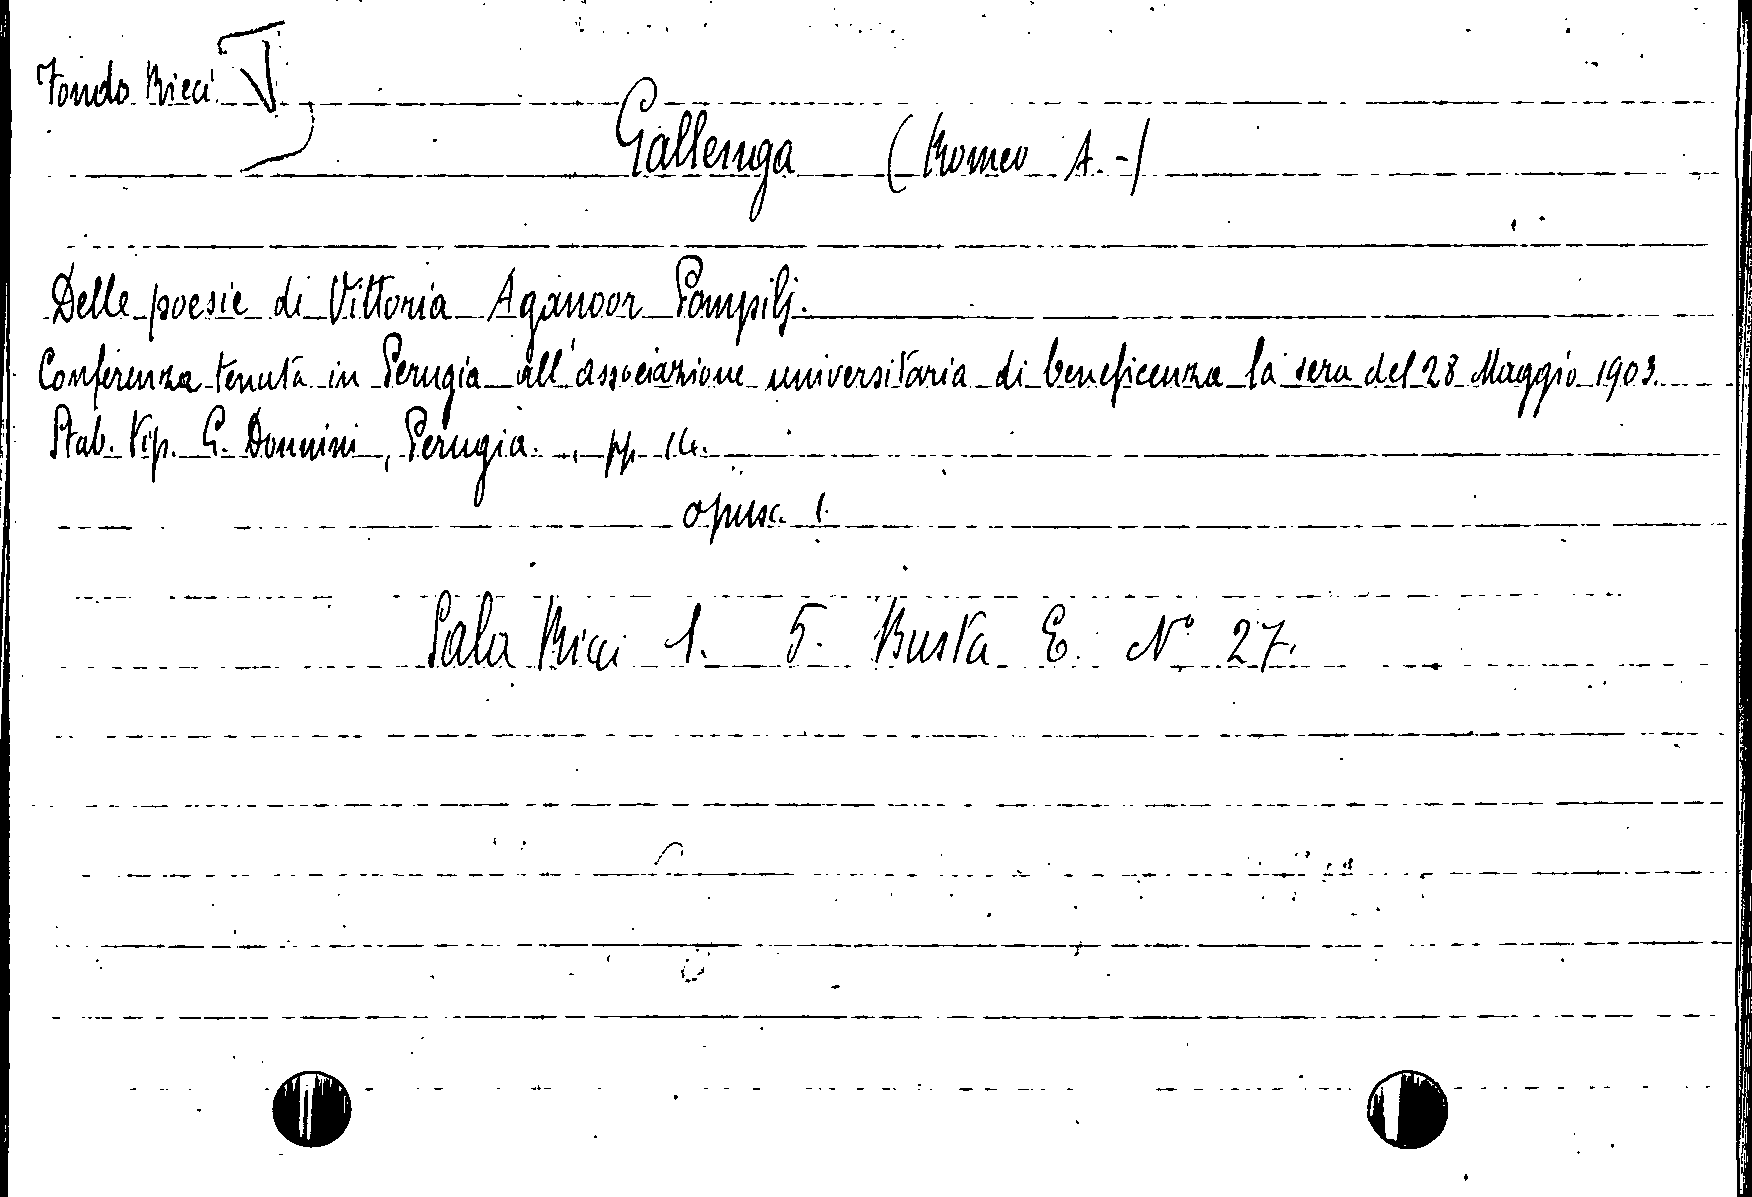 Fondo Ricci
Gallenga (Romeo A.-)
Delle poesie di Vittoria Aganoor Pompilj.
Conferenza tenuta in Perugia all'associazione universitaria di beneficenza la sera del 28 Maggio 1903.
Stab. Tip. G. Donnini, Perugia. , pp 14.
opusc. 1.
Sala Ricci 1. 5. Busta E. N° 27.